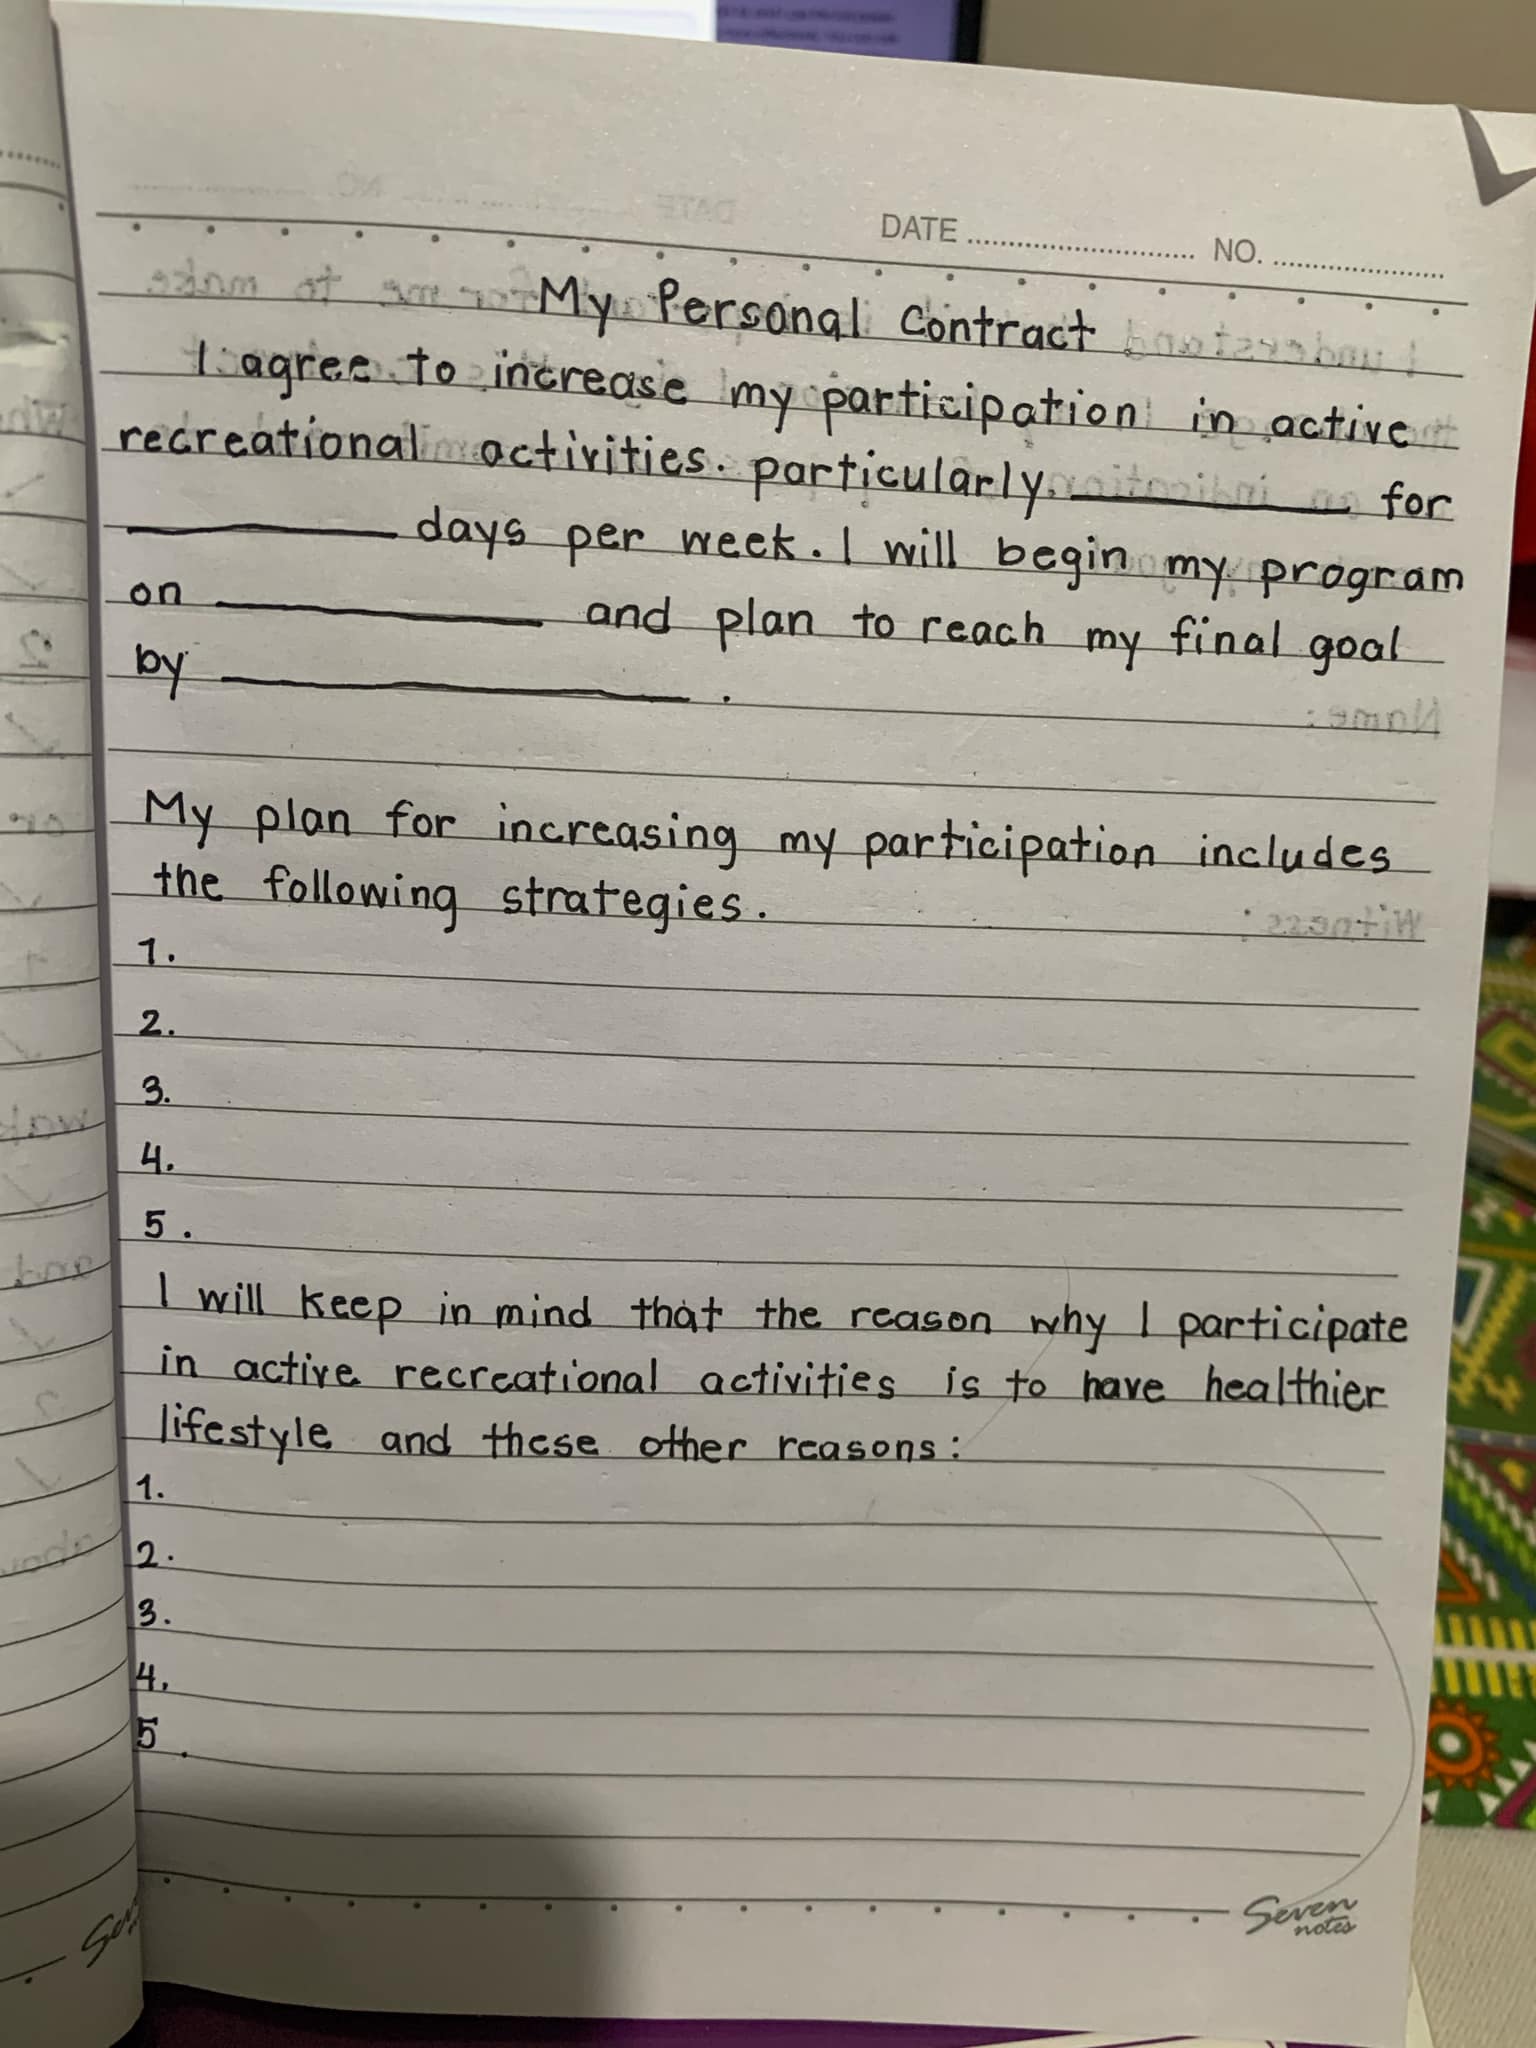 DATE NO.
My Personal Contract
I agree to increase my participation in active
recreational activities. particularly for
days per week. I will begin my program
on and plan to reach my final goal
by .
My plan for increasing my participation includes
the following strategies.
1.
2.
3.
4.
5.
I will keep in mind that the reason why I participate
in active recreational activities is to have healthier
lifestyle and these other reasons:
1.
2.
3.
4.
5.
Seven
notes